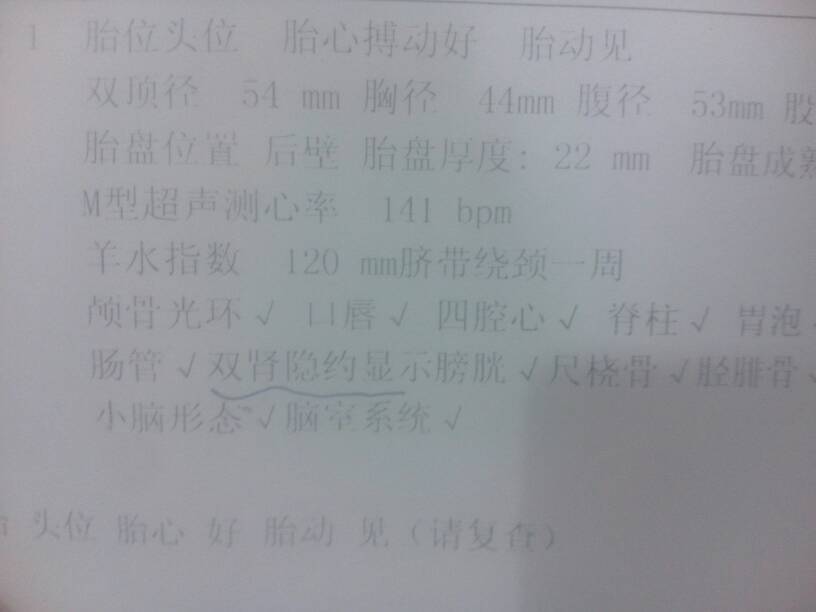 1 胎位头位 胎心搏动好 胎动见
双顶径 54 mm 胸径 44mm 腹径 53mm 股
胎盘位置 后壁 胎盘厚度: 22 mm 胎盘成熟
M型超声测心率 141 bpm
羊水指数 120 mm脐带绕颈一周
颅骨光环√ 口唇√ 四腔心√ 脊柱√ 胃泡
肠管√双肾隐约显示膀胱√尺桡骨√胫腓骨√
小脑形态√脑室系统√
头位 胎心 好 胎动 见(请复查)